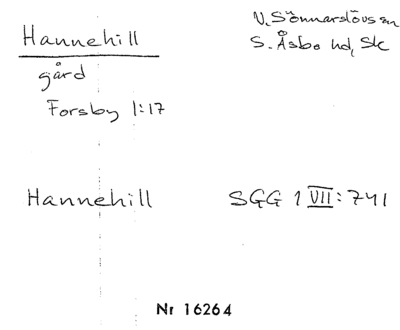 Hannehill
V. Sönnarslövs sn
S. Åsbo hd, Sk
gård
Forsby 1:17
Hannehill
SGG 1 VII: 741
Nr 16264